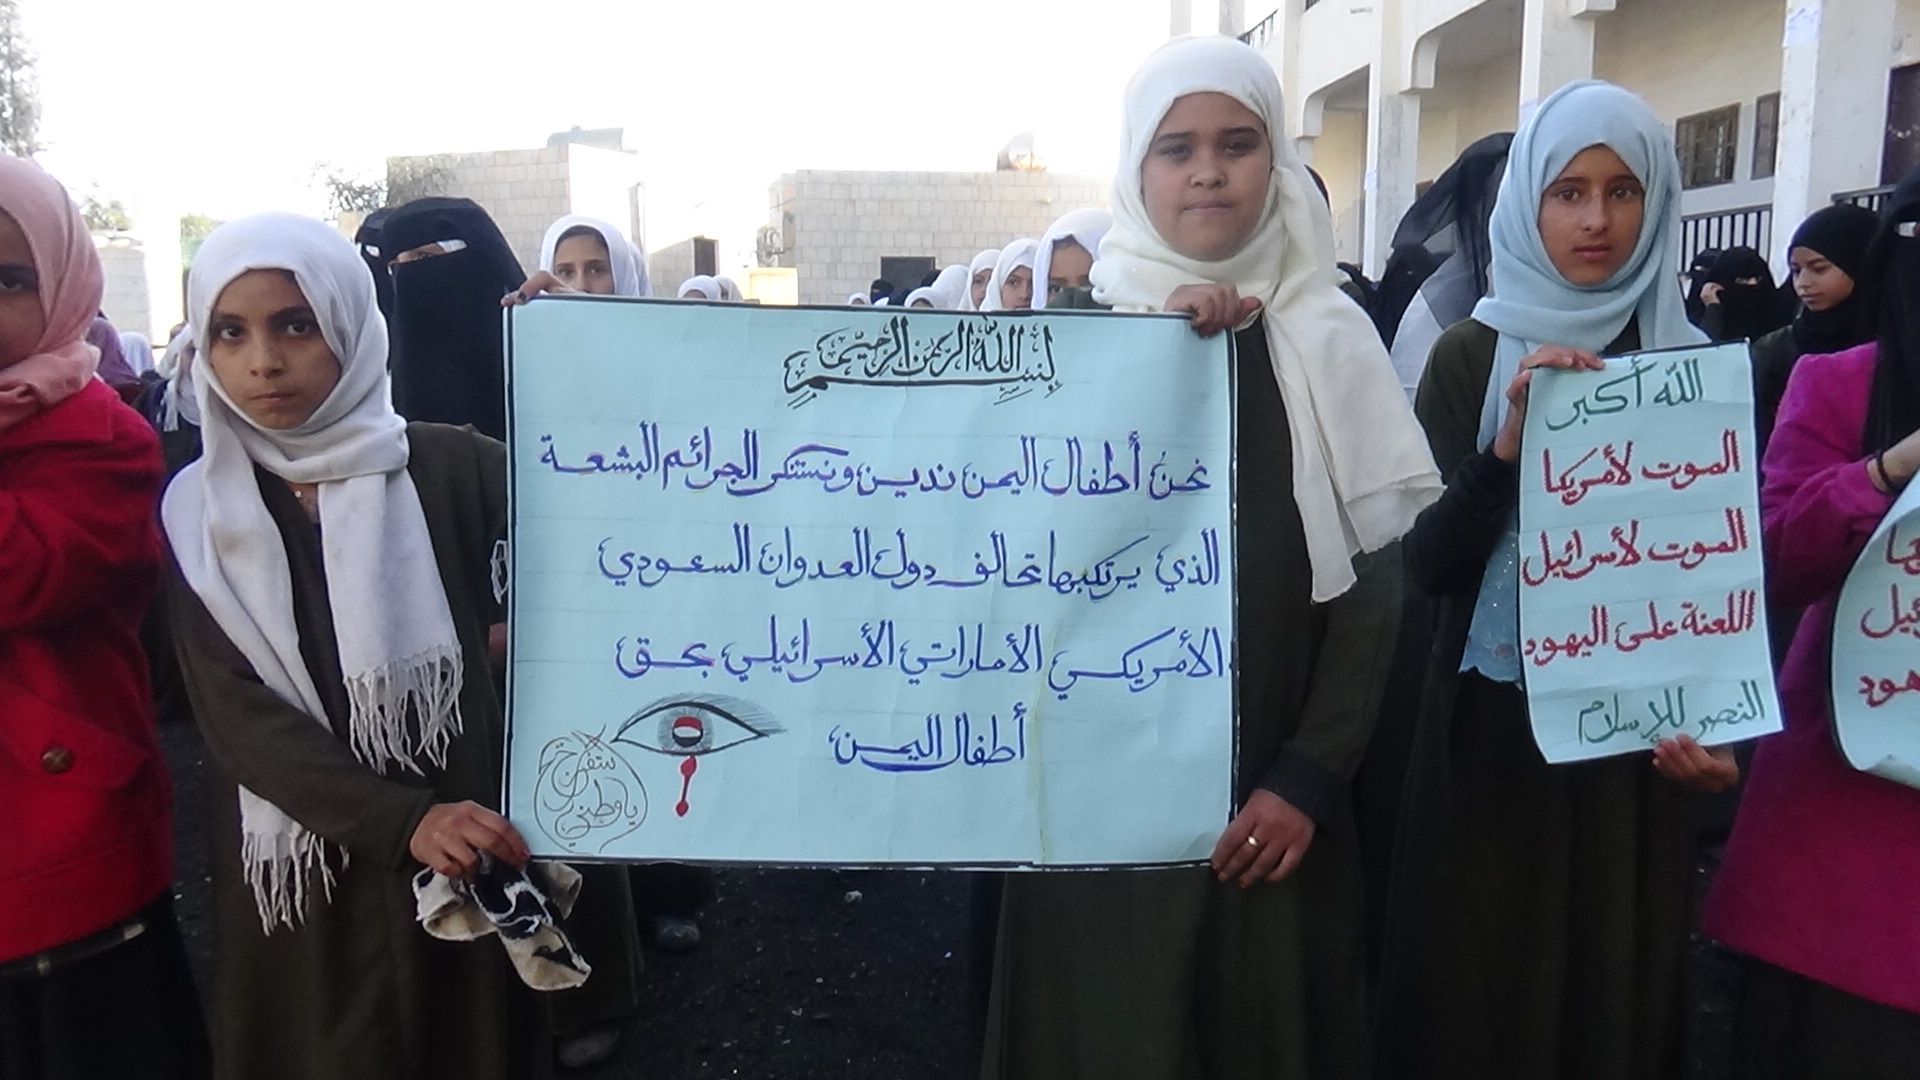 بسم الله الرحمن الرحيم
نحن أطفال اليمن ندين ونستنكر الجرائم البشعة
الذي يرتكبها تحالف دول العدوان السعودي
الأمريكي الأماراتي الأسرائيلي بحق
أطفال اليمن
ستفرج
يا وطني
الله أكبر
الموت لأمريكا
الموت لأسرائيل
اللعنة على اليهود
النصر للإسلام